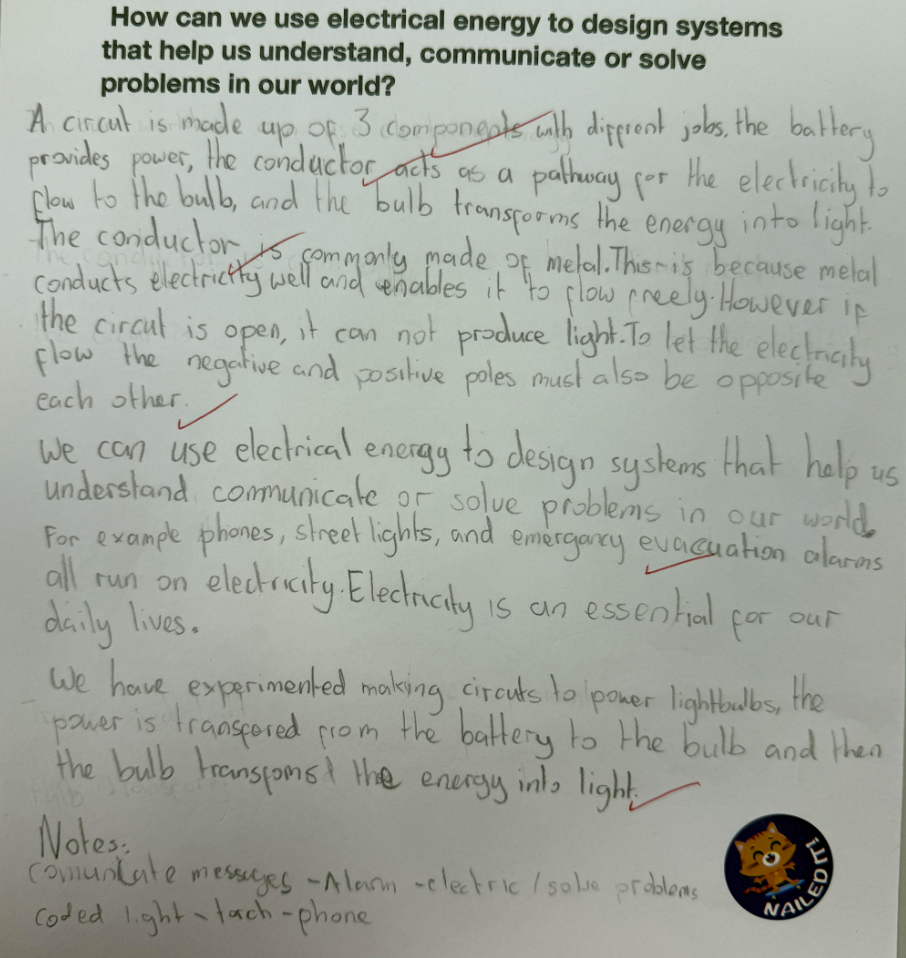 How can we use electrical energy to design systems
that help us understand, communicate or solve
problems in our world?
A circut is made up of 3 components with diffrent jobs, the battery
provides power, the conductor acts as a pathway for the electricity to
flow to the bulb, and the bulb transforms the energy into light.
The conductor is commonly made of metal. This is because metal
conducts electricity well and enables it to flow freely. However if
the circut is open, it can not produce light. To let the electricity
flow the negative and positive poles must also be opposite
each other.
We can use electrical energy to design systems that help us
understand, communicate or solve problems in our world.
For example phones, street lights, and emergancy evacuation alarms
all run on electricity. Electricity is an essential for our
daily lives.
We have experimented making circuts to power lightbulbs, the
power is transfered from the battery to the bulb and then
the bulb transforms the energy into light.
Notes:
messages - Alarm - electric / solve problems
coded light - - phone
NAILED IT!